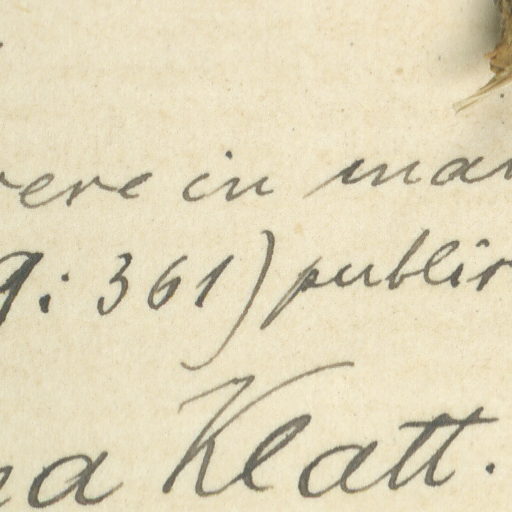 vere in man
9: 361) publis
na Klatt.